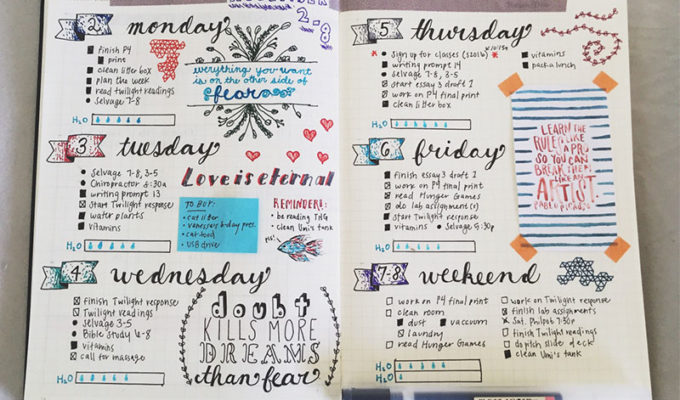 NOVEMBER
2-8
2 monday
finish P4
print
clean litter box
plan the week
read twilight readings
Selvage 7-8
H₂O
everything you want
is on the other side of
fear
3 tuesday
Selvage 7-8, 3-5
Chiropractor 8:30a
writing prompt 13
Start Twilight response
water plants
vitamins
H₂O
Love is eternal
TO BUY:
cat litter
vanessa's bday pres.
cat food
USB drive
REMINDER!:
be reading THG
clean Umi's tank
4 wednesday
finish Twilight response
Twilight readings
Selvage 3-5
Bible Study 6-8
vitamins
call for massage
H₂O
doubt
KILLS MORE
DREAMS
than fear
5 thursday
Sign up for classes (S2016)
writing prompt 14
Selvage 7-8, 3-5
start essay 3 draft 1
work on P4 final print
clean litter box
vitamins
pack a lunch
H₂O
LEARN THE
RULES LIKE
A PRO
SO YOU CAN
BREAK THEM
LIKE AN
ARTIST.
PABLO PICASSO
6 friday
finish essay 3 draft 1
work on P4 final print
read Hunger Games
do lab assignment(s)
start Twilight response
vitamins
Selvage 5:30p
H₂O
7-8 weekend
work on P4 final print
clean room
dust
vacuum
laundry
read Hunger Games
work on Twilight response
finish lab assignments
Sat. Philpot 7:30p
finish Twilight readings
do pitch slide deck
clean Umi's tank
H₂O
H₂O